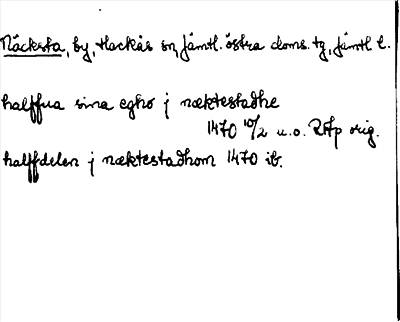 Näcksta, by, Hackås sn, Jämtl. östra doms. tg, Jämtl l.
halffua sina egho j næktestadhe
1470 10/2 u.o. RAp orig.
halffdelen j næktestadhom 1470 ib.